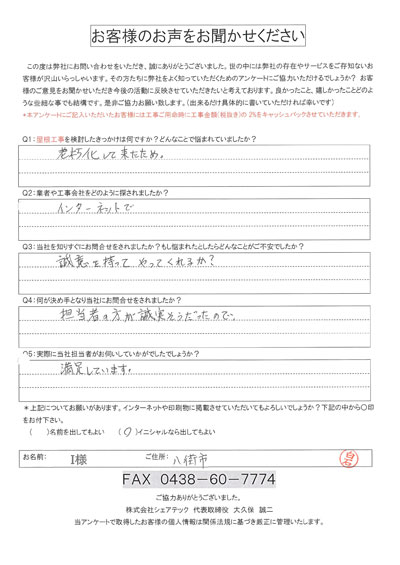 お客様のお声をお聞かせください
この度は弊社にお問い合わせをいただき、誠にありがとうございました。世の中には弊社の存在やサービスをご存知ないお
客様が沢山いらっしゃいます。その方たちに弊社をよく知っていただくためのアンケートにご協力いただけるでしょうか？ お客
様のご意見をお聞かせいただき今後の活動に反映させていただきたいと考えております。良かったこと、嬉しかったことどのよ
うな些細な事でも結構です。是非ご協力お願い致します。（出来るだけ具体的に書いていただければ幸いです）
*本アンケートにご記入いただいたお客様には工事ご用命時に工事金額（税抜き）の 2％をキャッシュバックさせていただきます。
Q1：屋根工事を検討したきっかけは何ですか？どんなことで悩まれていましたか？
老朽化して来たため。
Q2：業者や工事会社をどのように探されましたか？
インターネットで
Q3：当社を知りすぐにお問合せをされましたか？もし悩まれたとしたらどんなことがご不安でしたか？
誠意を持って やってくれるか？
Q4：何が決め手となり当社にお問合せをされましたか？
担当者の方が誠実そうだったので。
Q5：実際に当社担当者がお伺いしていかがでしたでしょうか？
満足しています。
＊上記についてお願いがあります。インターネットや印刷物に掲載させていただいてもよろしいでしょうか？下記の中から〇印
をお付下さい。
（　　）名前を出してもよい　　（〇）イニシャルなら出してもよい
お名前： I様 ご住所： 八街市
FAX 0438-60-7774
ご協力ありがとうございました。
株式会社シェアテック 代表取締役 大久保 誠二
当アンケートで取得したお客様の個人情報は関係法規に基づき厳正に管理いたします。